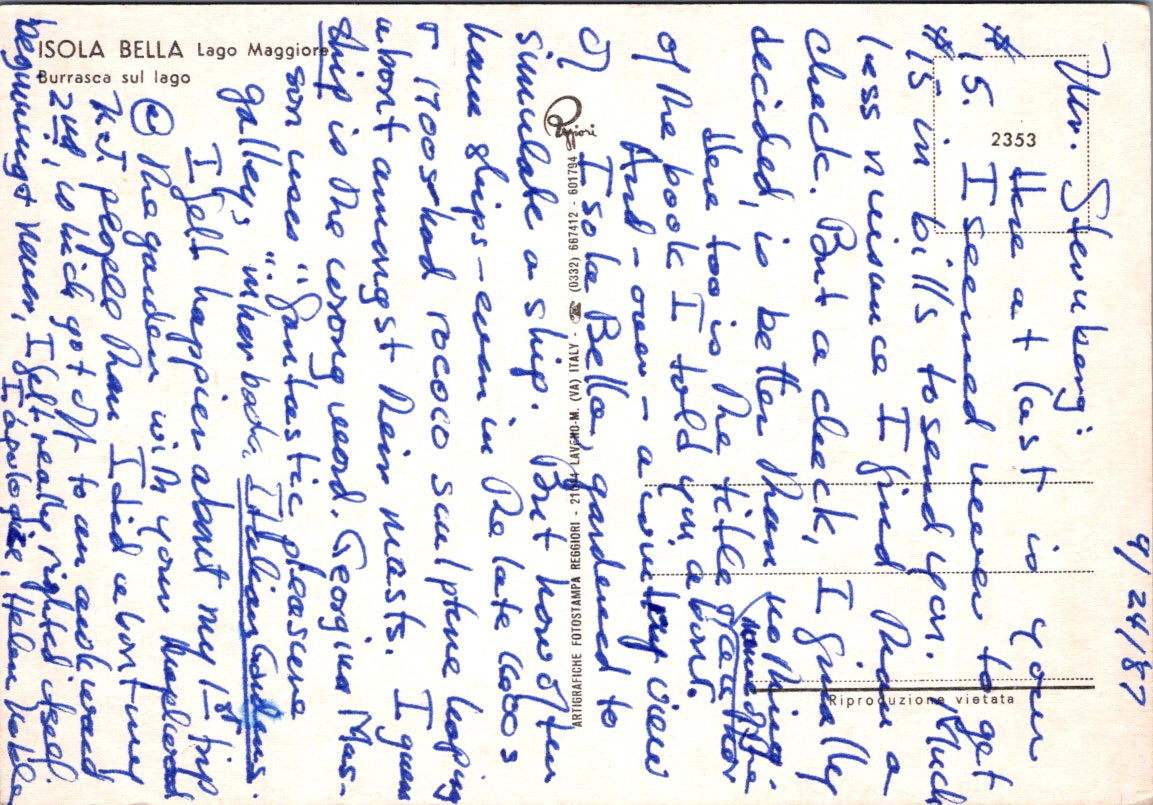 ISOLA BELLA Lago Maggiore
Burrasca sul lago
2353
Reggiori
ARTIGRAFICHE FOTOSTAMPA REGGIORI - 21014 LAVENO-M. (VA) ITALY - ☎ (0332) 667412 - 601794
Riproduzione vietata
9/24/87
Mr. Sternberg:
Here at last is your
$15. I seemed never to get
$15 in bills to send you. Much
less nuisance I find than a
check. But a check, I finally
decided, is better than nothing.
Here too is the title
name of the
of the book I told you about.
And - over - a view
of Isola Bella, gardened to
simulate a ship. But how often
have ships - even in the late 1600s
& 1700s had rococo sculpture leaping
about amongst their masts. I guess
ship is the wrong word. Georgina Mas-
son uses "fantastic pleasure
galley," in her book, Italian Gardens.
I felt happier about my 1st trip
@ the garden with your
N.J. people than I did about my
2nd, which got off to an awkward
beginning & never, I felt really righted itself.
I apologize, Helen